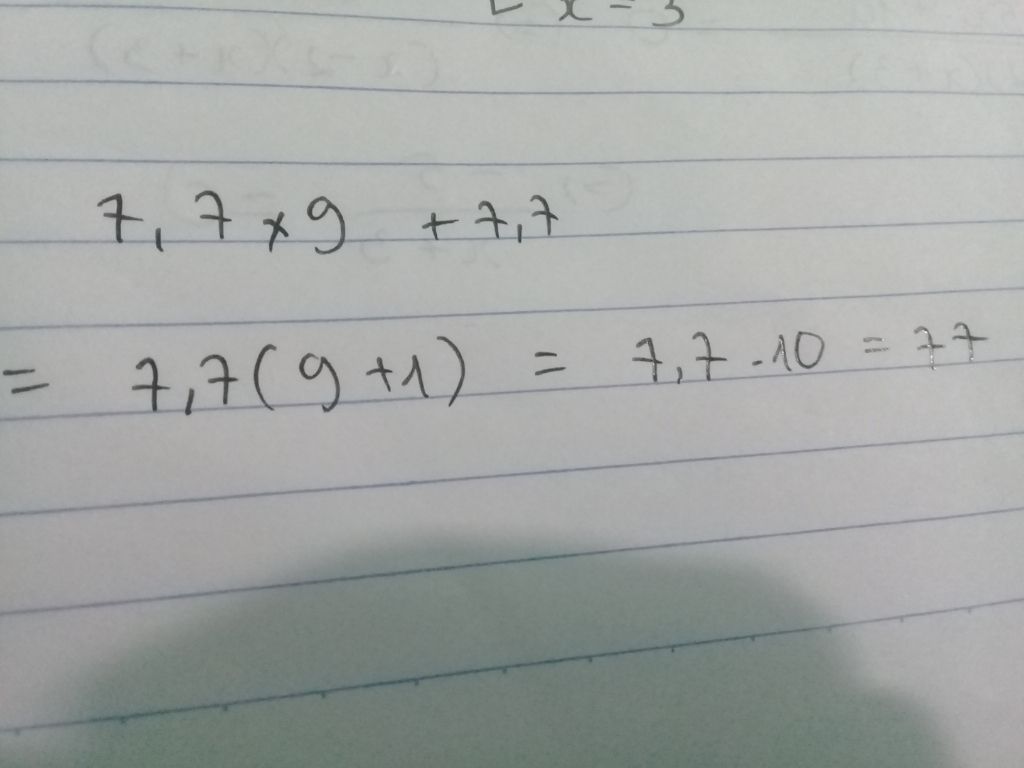 x = 3
7,7 x 9 + 7,7
= 7,7(9 + 1) = 7,7 . 10 = 77